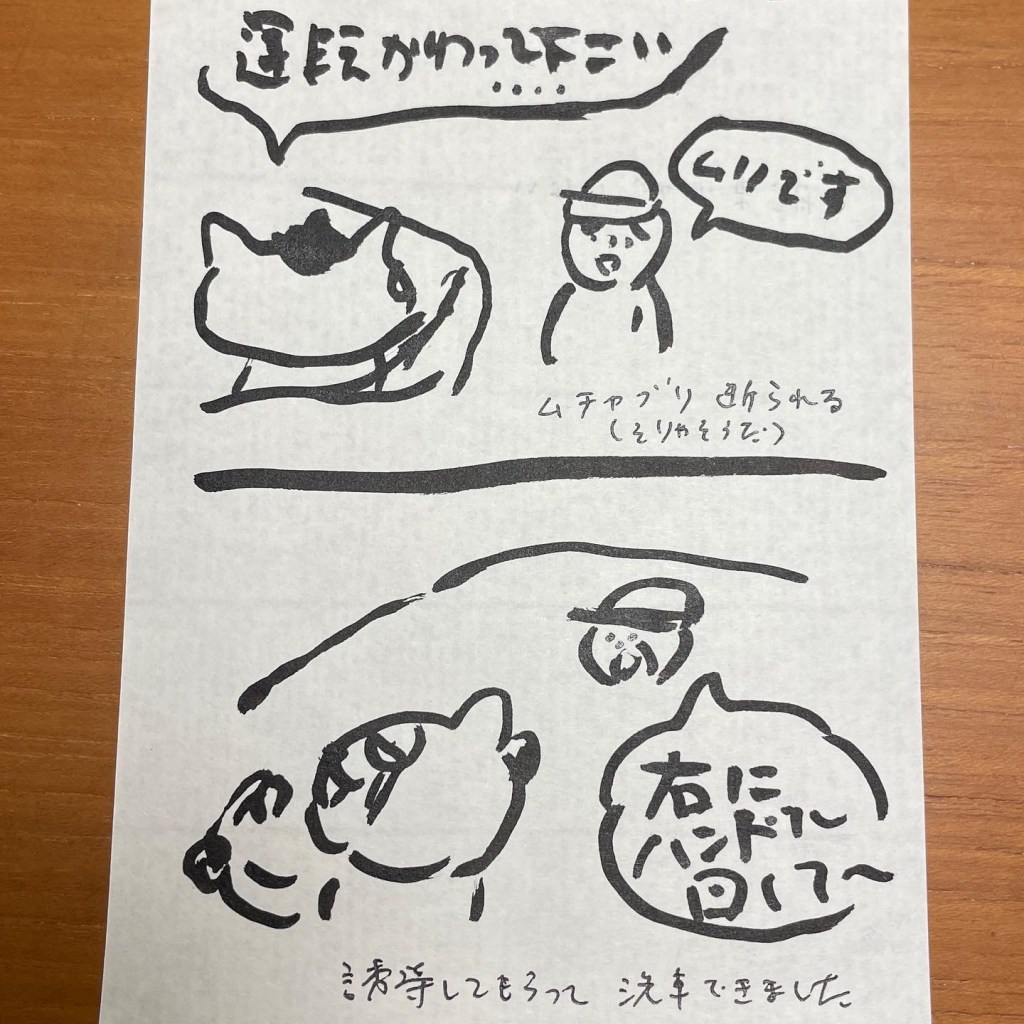 運転かわって下さい
....
ムリです
ムチャブリ 断られる
(そりゃそうだ)
右に
ハンドル
回して〜
誘導してもらって 洗車できました